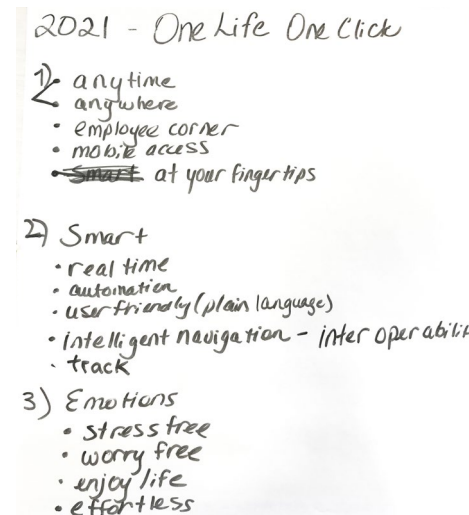 2021 - One Life One Click
1) anytime
anywhere
• employee corner
• mobile access
• at your fingertips
2) Smart
• real time
• automation
• user friendly (plain language)
• intelligent navigation - inter operabilit
• track
3) Emotions
• stress free
• worry free
• enjoy life
• effortless